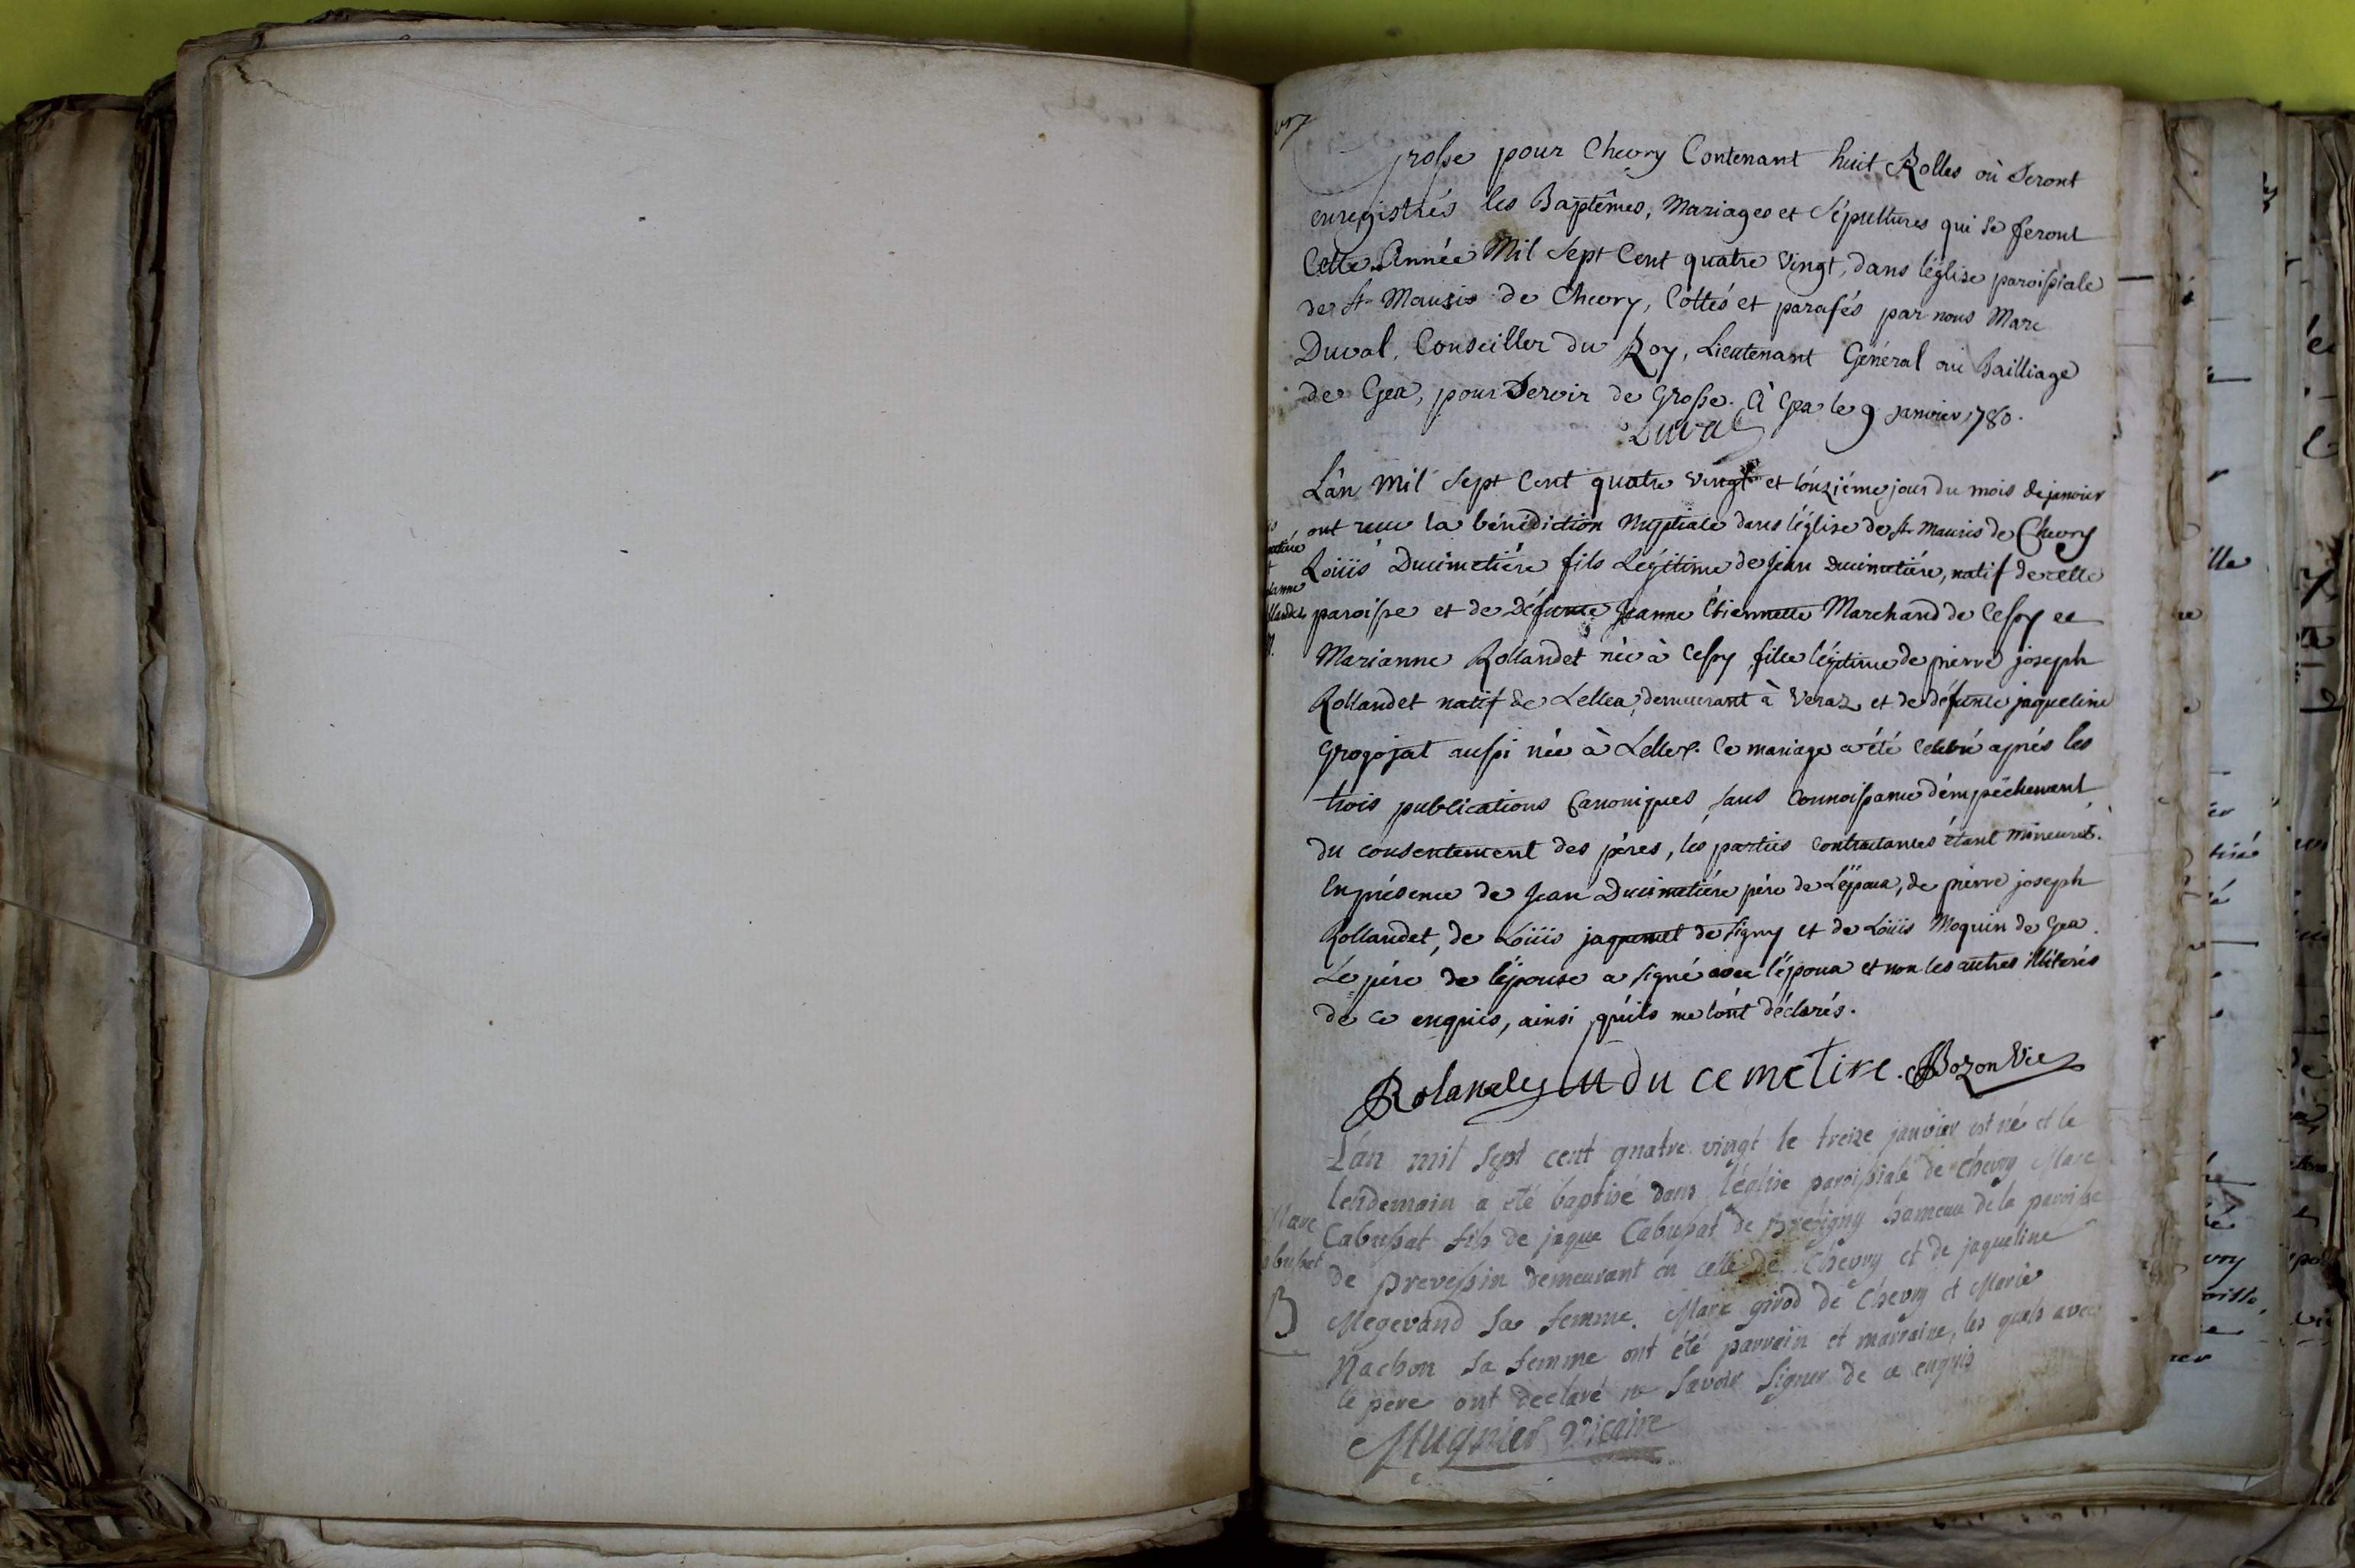 Grosse pour Chevry Contenant huit Rolles où Seront
enregistrés les Baptêmes, Mariages et Sépultures qui se feront
Cette Année Mil Sept Cent quatre Vingt, dans l'église paroissiale
de St Mauris de Chevry, Cottés et parafés par nous Marc
Duval, Conseiller du Roy, Lieutenant Général au Bailliage
de Gex, pour Servir de Grosse. à Gex le 9 Janvier 1780.
Duval
L'an Mil Sept Cent quatre vingt et l'onziéme jour du mois de janvier
ont reçu la bénédiction Nuptiale dans l'église de St Mauris de Chevry
Loüis Ducimetiére fils Légitime de Jean Ducimetiére, natif de cette
paroisse et de Défunte Jeanne Etiennette Marchand de Cessy et
Marianne Rollandet née à Cessy fille légitime de pierre joseph
Rollandet natif de Lellex, demeurant à Veraz et de défunte jaqueline
Grogojat aussi née à Lellex. Ce mariage a été célébré aprés les
trois publications Canoniques, sans Connoissance d'émpéchement
du consentement des péres, les parties Contractantes étant mineures.
En présence de Jean Ducimetiére pére de L'époux, de pierre joseph
Rollandet, de Loüis jaquemet de Signy et de Loüis Moquin de Gex.
Le pére de l'épouse a signé avec l'époux et non les autres illiterés
de ce enquis, ainsi qu'ils me l'ont déclarés.
Rolandet du cemetire. Bozon Vic
L'an mil Sept cent quatre vingt le treize janvier est né et le
lendemain a été baptisé dans l'église paroissiale de Chevry Marc
Cabussat fils de jaque Cabussat de Bretigny hameau de la paroisse
de prevessin demeurant en celle de Chevry et de jaqueline
Megevand sa femme. Marc girod de Chevry et Marie
Nachon sa femme ont été parrain et marraine, les quels avec
le pere ont declaré ne Savoir Signer de ce enquis
Mugnier Vicaire